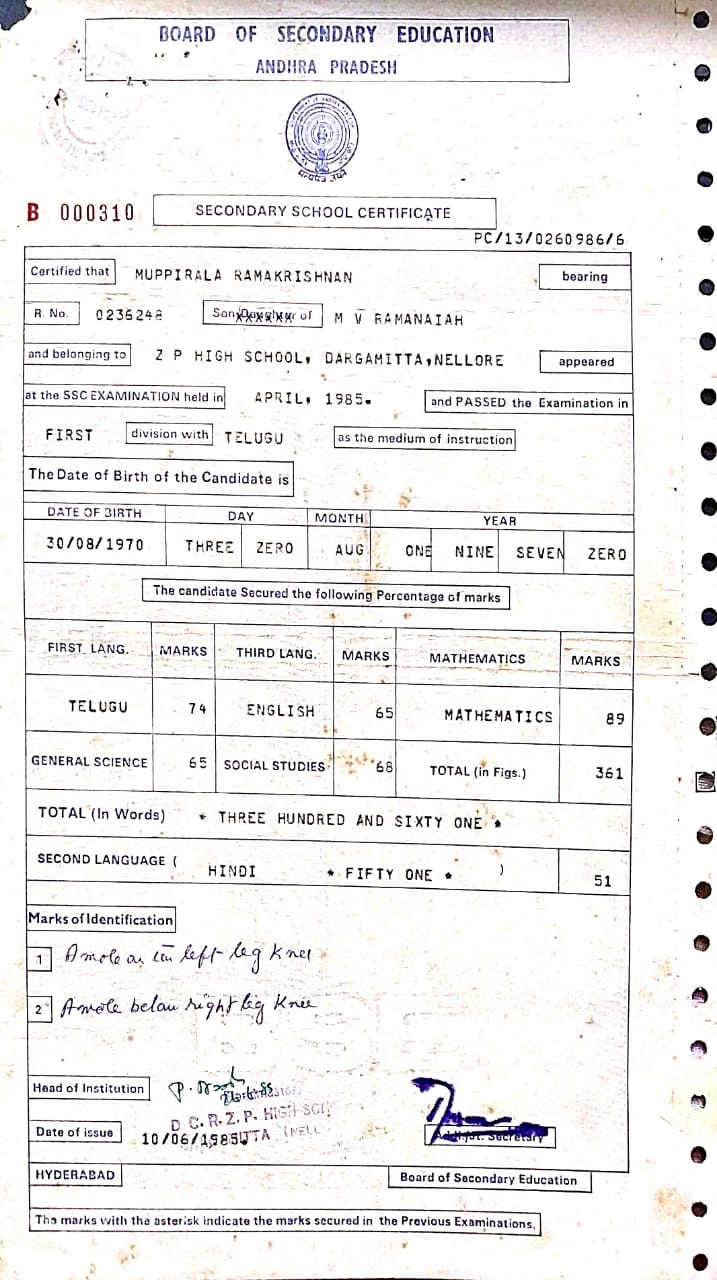 BOARD OF SECONDARY EDUCATION
ANDHRA PRADESH
B 000310 SECONDARY SCHOOL CERTIFICATE
PC/13/0260986/6
Certified that MUPPIRALA RAMAKRISHNAN bearing
R. No. 0236248 Son/Daughter of M V RAMANAIAH
and belonging to Z P HIGH SCHOOL, DARGAMITTA,NELLORE appeared
at the SSC EXAMINATION held in APRIL, 1985. and PASSED the Examination in
FIRST division with TELUGU as the medium of instruction
The Date of Birth of the Candidate is
DATE OF BIRTH DAY MONTH YEAR
30/08/1970 THREE ZERO AUG ONE NINE SEVEN ZERO
The candidate Secured the following Percentage of marks
FIRST LANG. MARKS THIRD LANG. MARKS MATHEMATICS MARKS
TELUGU 74 ENGLISH 65 MATHEMATICS 89
GENERAL SCIENCE 65 SOCIAL STUDIES 68 TOTAL (in Figs.) 361
TOTAL (In Words) * THREE HUNDRED AND SIXTY ONE *
SECOND LANGUAGE ( HINDI * FIFTY ONE * ) 51
Marks of Identification
1 A mole on left leg Knee
2 A mole below right leg Knee
Head of Institution
D.C.R.Z.P. HIGH SCH
Date of issue 10/06/1985. Secretary
HYDERABAD Board of Secondary Education
The marks with the asterisk indicate the marks secured in the Previous Examinations.